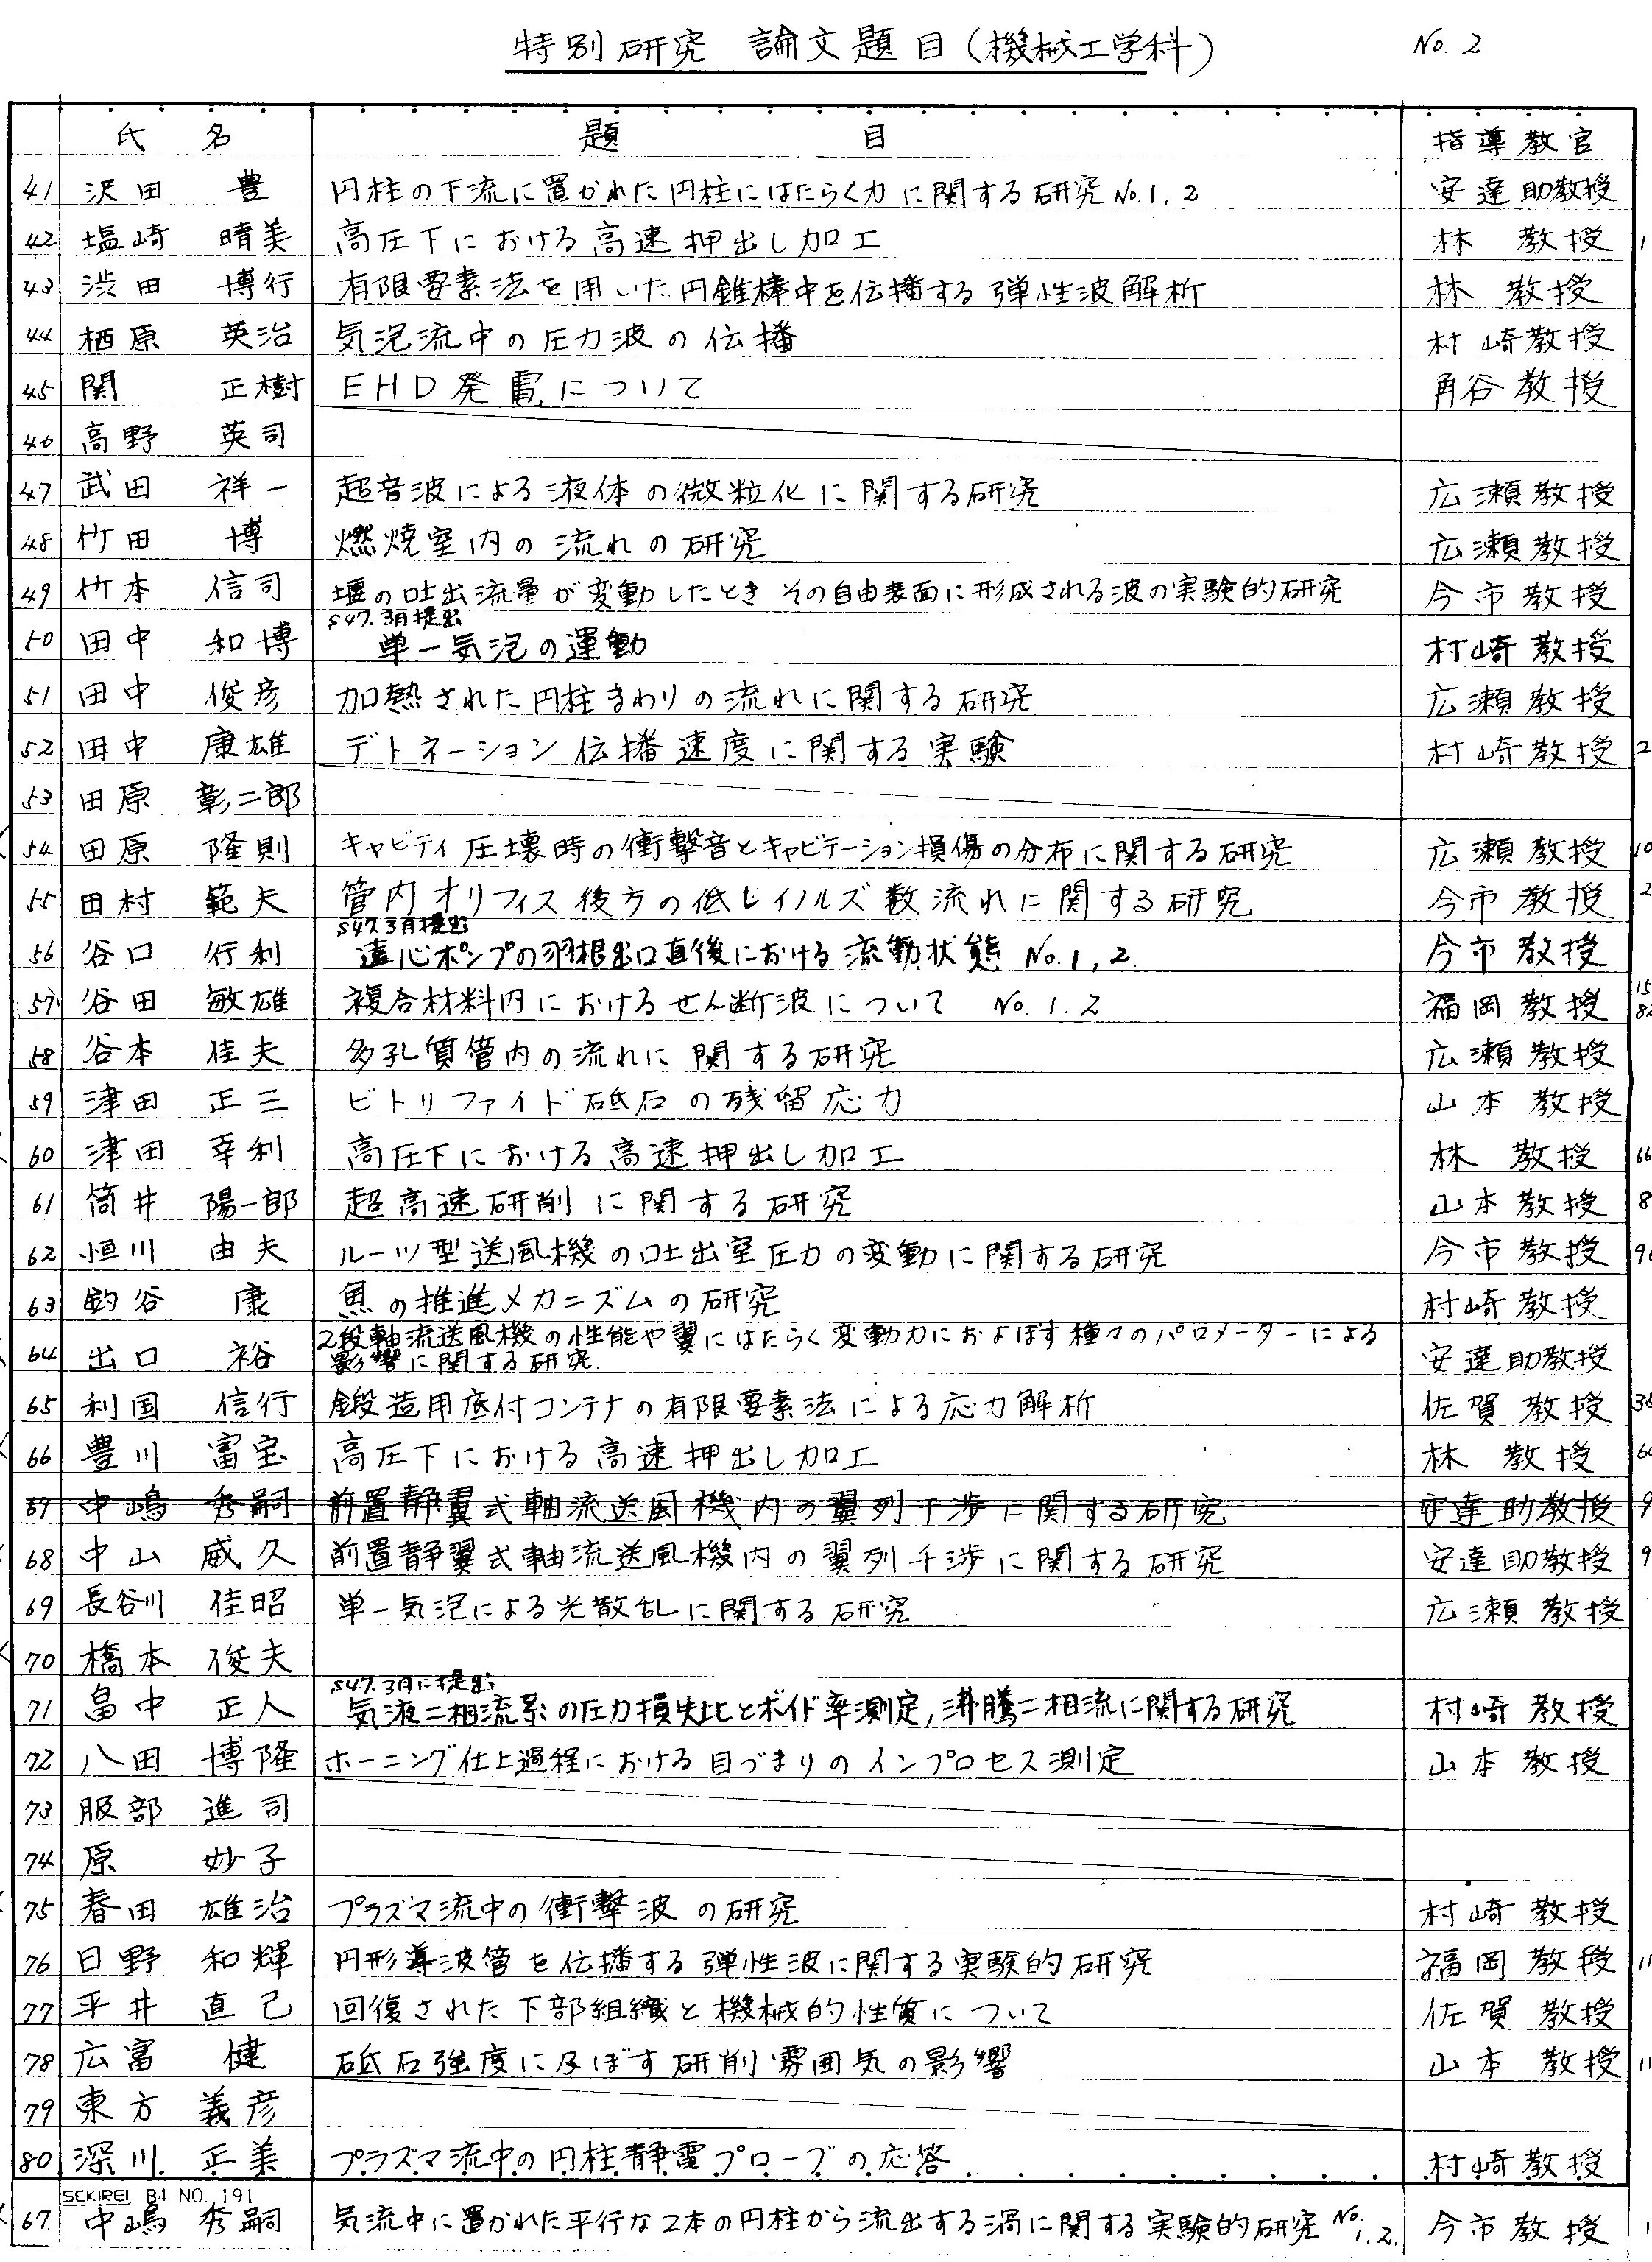 特別研究 論文題目(機械工学科) No. 2.
氏 名 題 目 指導教官
41 沢田 豊 円柱の下流に置かれた円柱にはたらく力に関する研究 No.1, 2 安達助教授
42 塩崎 晴美 高圧下における高速押出し加工 林 教授 1
43 渋田 博行 有限要素法を用いた円錐棒中を伝播する弾性波解析 林 教授
44 栖原 英治 気泡流中の圧力波の伝播 村崎教授
45 関 正樹 EHD発電について 角谷教授
46 高野 英司
47 武田 祥一 超音波による液体の微粒化に関する研究 広瀬教授
48 竹田 博 燃焼室内の流れの研究 広瀬教授
49 竹本 信司 堰の吐出流量が変動したとき その自由表面に形成される波の実験的研究 今市教授
S47.3月提出
50 田中 和博 単一気泡の運動 村崎教授
51 田中 俊彦 加熱された円柱まわりの流れに関する研究 広瀬教授
52 田中 康雄 デトネーション伝播速度に関する実験 村崎教授 2
53 田原 彰二郎
54 田原 隆則 キャビティ圧壊時の衝撃音とキャビテーション損傷の分布に関する研究 広瀬教授 10
55 田村 範夫 管内オリフィス後方の低レイノルズ数流れに関する研究 今市教授 2
S47.3月提出
56 谷口 行利 遠心ポンプの羽根出口直後における流動状態 No.1, 2 今市教授
57 谷田 敏雄 複合材料内におけるせん断波について No. 1. 2 福岡教授 15 82
58 谷本 佳夫 多孔質管内の流れに関する研究 広瀬教授
59 津田 正三 ビトリファイド砥石の残留応力 山本教授
60 津田 幸利 高圧下における高速押出し加工 林 教授 66
61 筒井 陽一郎 超高速研削に関する研究 山本教授 8
62 恒川 由夫 ルーツ型送風機の吐出室圧力の変動に関する研究 今市教授
63 釣谷 康 魚の推進メカニズムの研究 村崎教授
2段軸流送風機の性能や翼にはたらく変動力におよぼす種々のパロメーターによる
64 出口 裕 影響に関する研究 安達助教授
65 利国 信行 鍛造用底付コンテナの有限要素法による応力解析 佐賀教授
66 豊川 富宝 高圧下における高速押出し加工 林 教授
67 中嶋 秀嗣 前置静翼式軸流送風機内の翼列干渉に関する研究 安達助教授 9
68 中山 威久 前置静翼式軸流送風機内の翼列干渉に関する研究 安達助教授 9
69 長谷川 佳昭 単一気泡による光散乱に関する研究 広瀬教授
70 橋本 俊夫
S47.3月に提出
71 畠中 正人 気液二相流系の圧力損失比とボイド率測定,沸騰二相流に関する研究 村崎教授
72 八田 博隆 ホーニング仕上過程における目づまりのインプロセス測定 山本教授
73 服部 進司
74 原 妙子
75 春田 雄治 プラズマ流中の衝撃波の研究 村崎教授
76 日野 和輝 円形導波管を伝播する弾性波に関する実験的研究 福岡教授 11
77 平井 直己 回復された下部組織と機械的性質について 佐賀教授
78 広富 健 砥石強度に及ぼす研削雰囲気の影響 山本教授 11
79 東方 義彦
80 深川 正美 プラズマ流中の円柱静電プローブの応答 村崎教授
SEKIREI B4 NO. 191
67 中嶋 秀嗣 気流中に置かれた平行な2本の円柱から流出する渦に関する実験的研究 No. 1.2. 今市教授 1